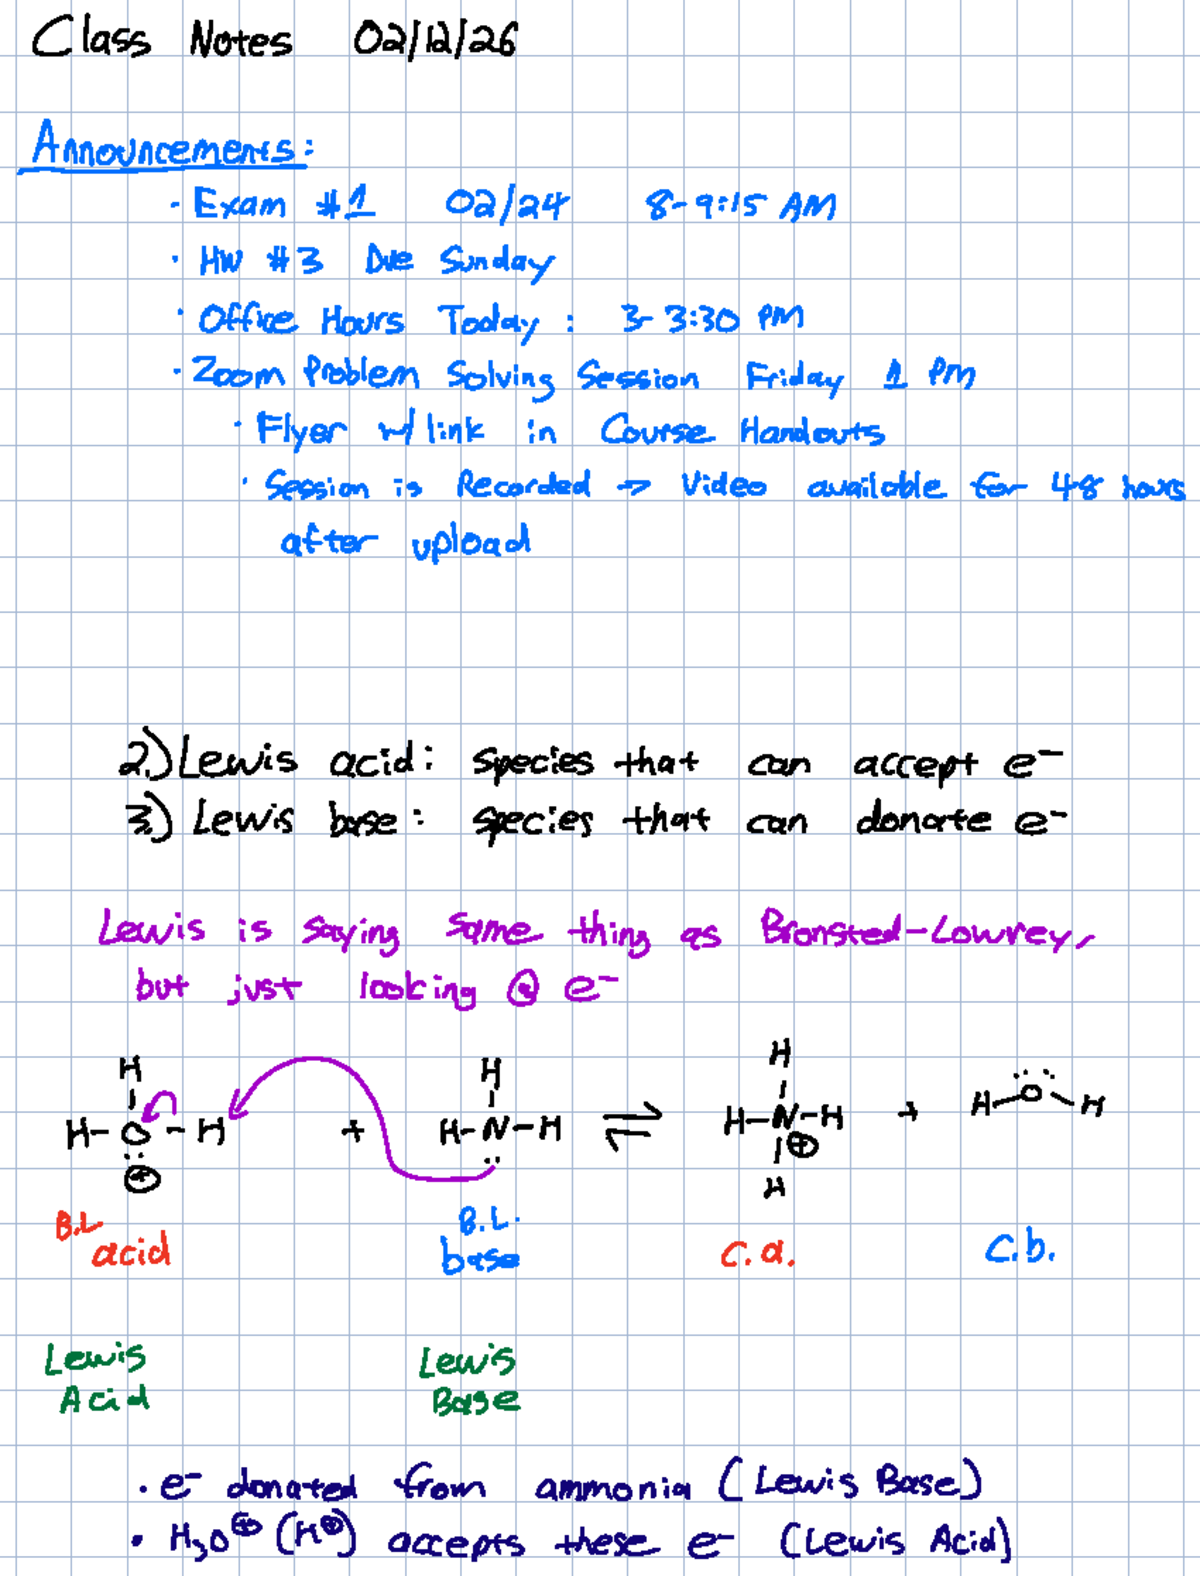 Class Notes 02/12/26
Announcements:
· Exam #1 02/24 8-9:15 AM
· HW #3 Due Sunday
· Office Hours Today: 3-3:30 PM
· Zoom Problem Solving Session Friday 1 PM
· Flyer w/ link in Course Handouts
· Session is Recorded → Video available for 48 hours
after upload
2.) Lewis acid: species that can accept e⁻
3.) Lewis base: species that can donate e⁻
Lewis is saying same thing as Bronsted-Lowrey,
but just looking @ e⁻
H H H
H-O-H + H-N-H ⇌ H-N-H + H-O-H
⊕ ⊕
H
B.L acid B.L. base C.a. C.b.
Lewis Acid Lewis Base
· e⁻ donated from ammonia (Lewis Base)
· H₃O⊕ (H⊕) accepts these e⁻ (Lewis Acid)